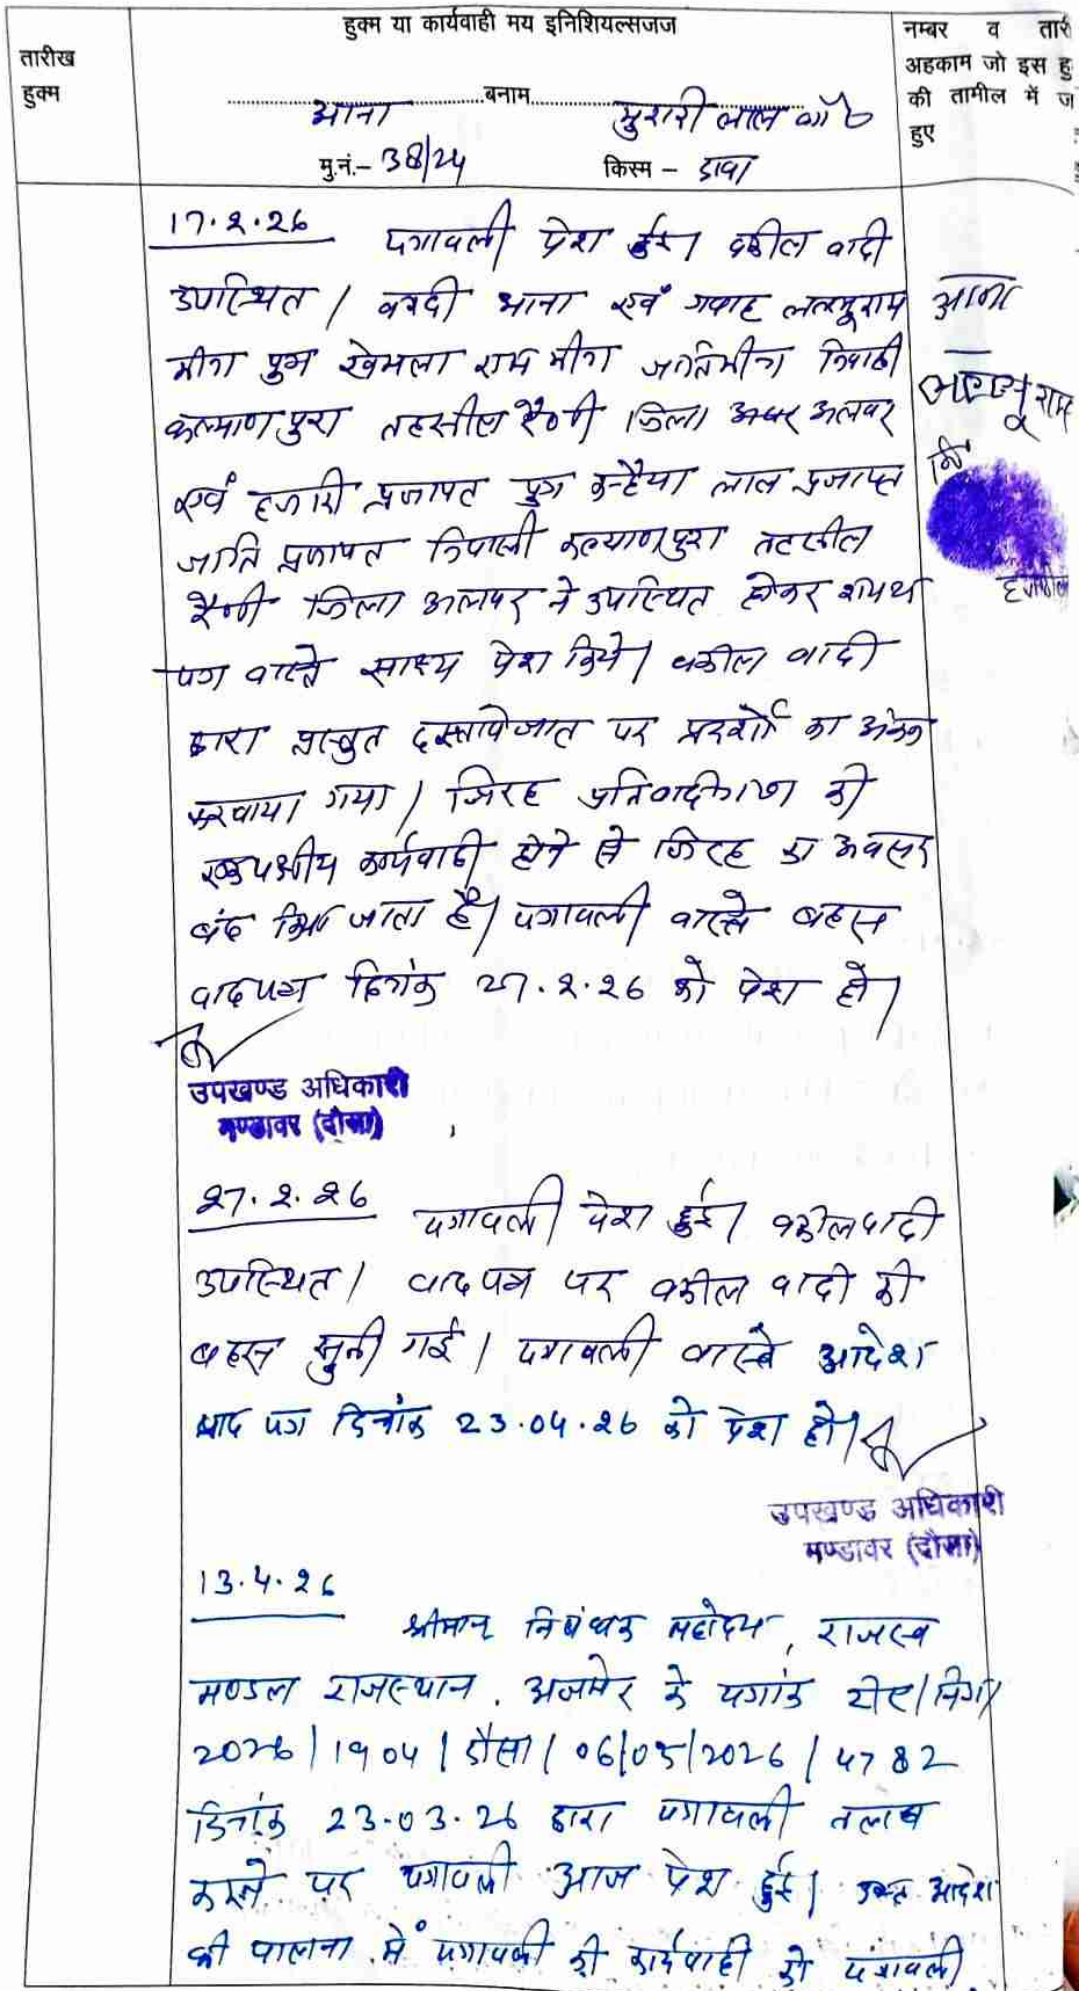 हुक्म या कार्यवाही मय इनिशियल्सजज
तारीख
हुक्म
नम्बर व तारी
अहकाम जो इस हु
की तामील में ज
हुए
बनाम
आना मुरारी लाल
मु.नं.- 38/24 किस्म - दावा
17.2.26
पत्रावली पेश हुई। वकील वादी
उपस्थित। वादी आना एवं गवाह लल्लूराम
मीना पुत्र खेमला राम मीना जाति मीना निवासी
कल्याणपुरा तहसील रैणी जिला अलवर
एवं हजारी प्रजापत पुत्र कन्हैया लाल प्रजापत
जाति प्रजापत निवासी कल्याणपुरा तहसील
रैणी जिला अलवर ने उपस्थित होकर शपथ
पत्र वास्ते साक्ष्य पेश किये। वकील वादी
द्वारा प्रस्तुत दस्तावेजात पर प्रदर्शो का अंकन
करवाया गया। जिरह प्रतिवादीगण की
एकपक्षीय कार्यवाही होने से जिरह का अवसर
बंद किया जाता है। पत्रावली वास्ते बहस
वादपत्र दिनांक 27.2.26 को पेश हो।
आना
राम
नि
उपखण्ड अधिकारी
मण्डावर (दौसा)
27.2.26
पत्रावली पेश हुई। वकील वादी
उपस्थित। वादपत्र पर वकील वादी की
बहस सुनी गई। पत्रावली वास्ते आदेश
वाद पत्र दिनांक 23.04.26 को पेश हो।
उपखण्ड अधिकारी
मण्डावर (दौसा)
13.4.26
श्रीमान् निबंधक महोदय, राजस्व
मण्डल राजस्थान, अजमेर के पत्रांक
2026/1904/दौसा/06/03/2026/4782
दिनांक 23.03.26 द्वारा पत्रावली तलब
करने पर पत्रावली आज पेश हुई। उक्त आदेश
की पालना में पत्रावली की कार्यवाही को पत्रावली